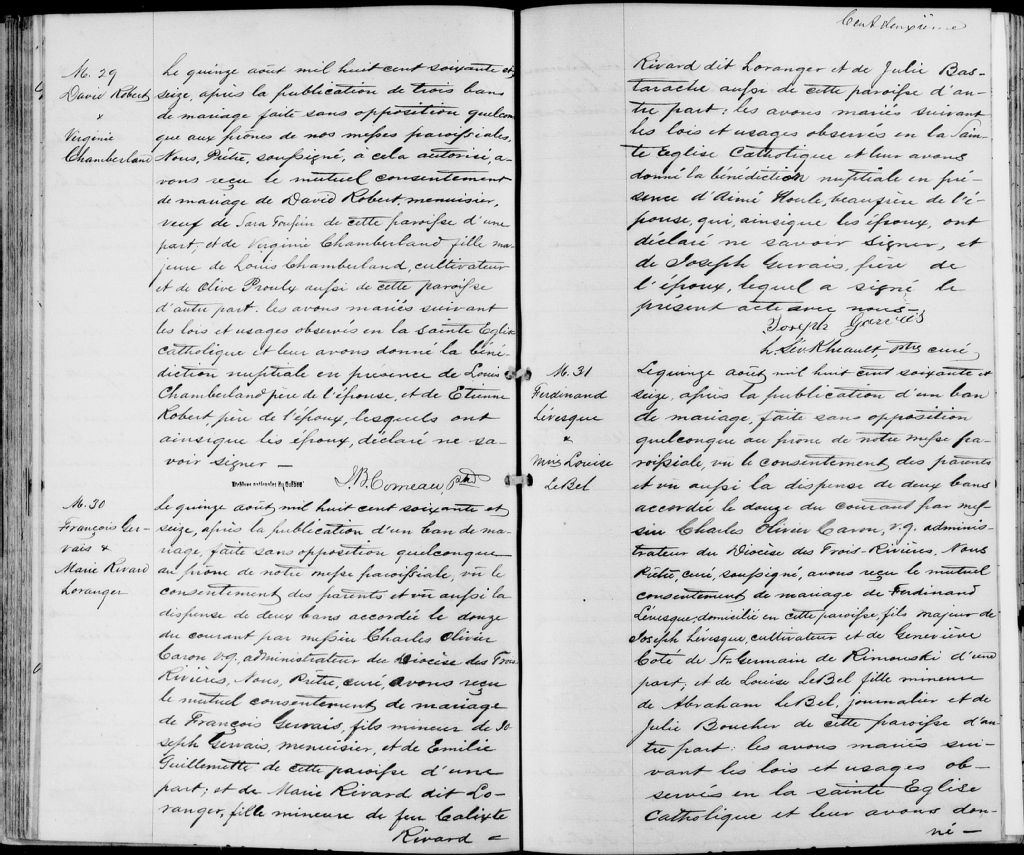 M. 29
David Robert
x
Virginie
Chamberland
Le quinze août mil huit cent soixante et
seize, après la publication de trois bans
de mariage faite sans opposition quelcon
que aux prônes de nos messes paroissiales,
Nous, Prêtre, soussigné, à cela autorisé, a-
vons reçu le mutuel consentement
de mariage de David Robert, menuisier,
veuf de Sara Toupin de cette paroisse d'une
part, et de Virginie Chamberland, fille ma-
jeure de Louis Chamberland, cultivateur
et de Olive Proulx aussi de cette paroisse
d'autre part: les avons mariés suivant
les lois et usages observés en la Sainte Eglise
Catholique et leur avons donné la béné-
diction nuptiale en présence de Louis
Chamberland père de l'épouse, et de Etienne
Robert, père de l'époux, lesquels ont
ainsique les époux, déclaré ne sa-
voir signer —
Archives nationales du Québec
J.B. Comeau, ptre
M. 30
François Ger-
vais &
Marie Rivard
Loranger
Le quinze août mil huit cent soixante et
seize, après la publication d'un ban de ma-
riage, faite sans opposition quelconque
au prône de notre messe paroissiale, vû le
consentement des parents et vû aussi la
dispense de deux bans accordée le douze
du courant par messire Charles Olivier
Caron v.g., administrateur du Diocèse des Trois-
Rivières, Nous, Prêtre, curé, avons reçu
le mutuel consentement de mariage
de François Gervais, fils mineur de Jo-
seph Gervais, menuisier, et de Emilie
Guillemette de cette paroisse d'une
part; et de Marie Rivard dit Lo-
ranger, fille mineure de feu Calixte
Rivard =
Cent deuxième
Rivard dit Loranger et de Julie Bas-
tarache aussi de cette paroisse d'au-
tre part: les avons mariés suivant
les lois et usages observés en la Sain-
te Eglise Catholique et leur avons
donné la bénédiction nuptiale en pré-
sence d'Aimé Houle, beaufrère de l'é-
pouse, qui, ainsique les époux, ont
déclaré ne savoir signer, et
de Joseph Gervais, père de
l'époux, lequel a signé le
présent acte avec nous —
Joseph Garvais
L. Sév. Rheault, ptre curé
M. 31
Ferdinand
Lévesque
&
Louise
LeBel
Le quinze août mil huit cent soixante et
seize, après la publication d'un ban
de mariage, faite sans opposition
quelconque au prône de notre messe pa-
roissiale, vû le consentement des parents
et vû aussi la dispense de deux bans
accordée le douze du courant par mes-
sire Charles Olivier Caron, v.g. adminis-
trateur du Diocèse des Trois-Rivières, Nous
Prêtre, curé, soussigné, avons reçu le mutuel
consentement de mariage de Ferdinand
Lévesque, domicilié en cette paroisse, fils majeur de
Joseph Lévesque, cultivateur et de Geneviève
Coté de St Germain de Rimouski d'une
part; et de Louise LeBel fille mineure
de Abraham LeBel, journalier et de
Julie Boucher de cette paroisse d'au
tre part: les avons mariés sui-
vant les lois et usages ob-
servés en la sainte Eglise
Catholique et leur avons don-
né —